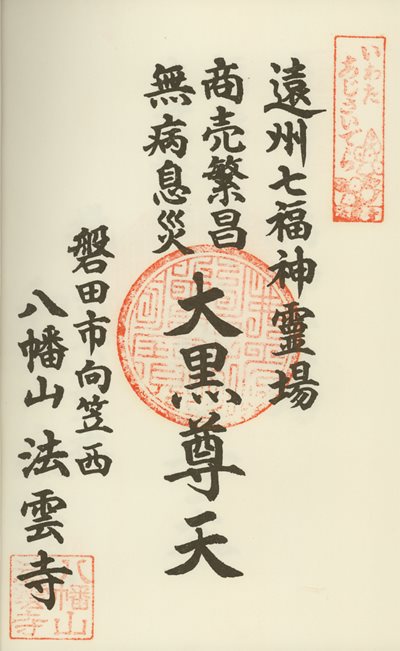 いわた
あじさいでら
遠州七福神霊場
商売繁昌
無病息災
大黒尊天
磐田市向笠西
八幡山 法雲寺
八幡山
法雲寺